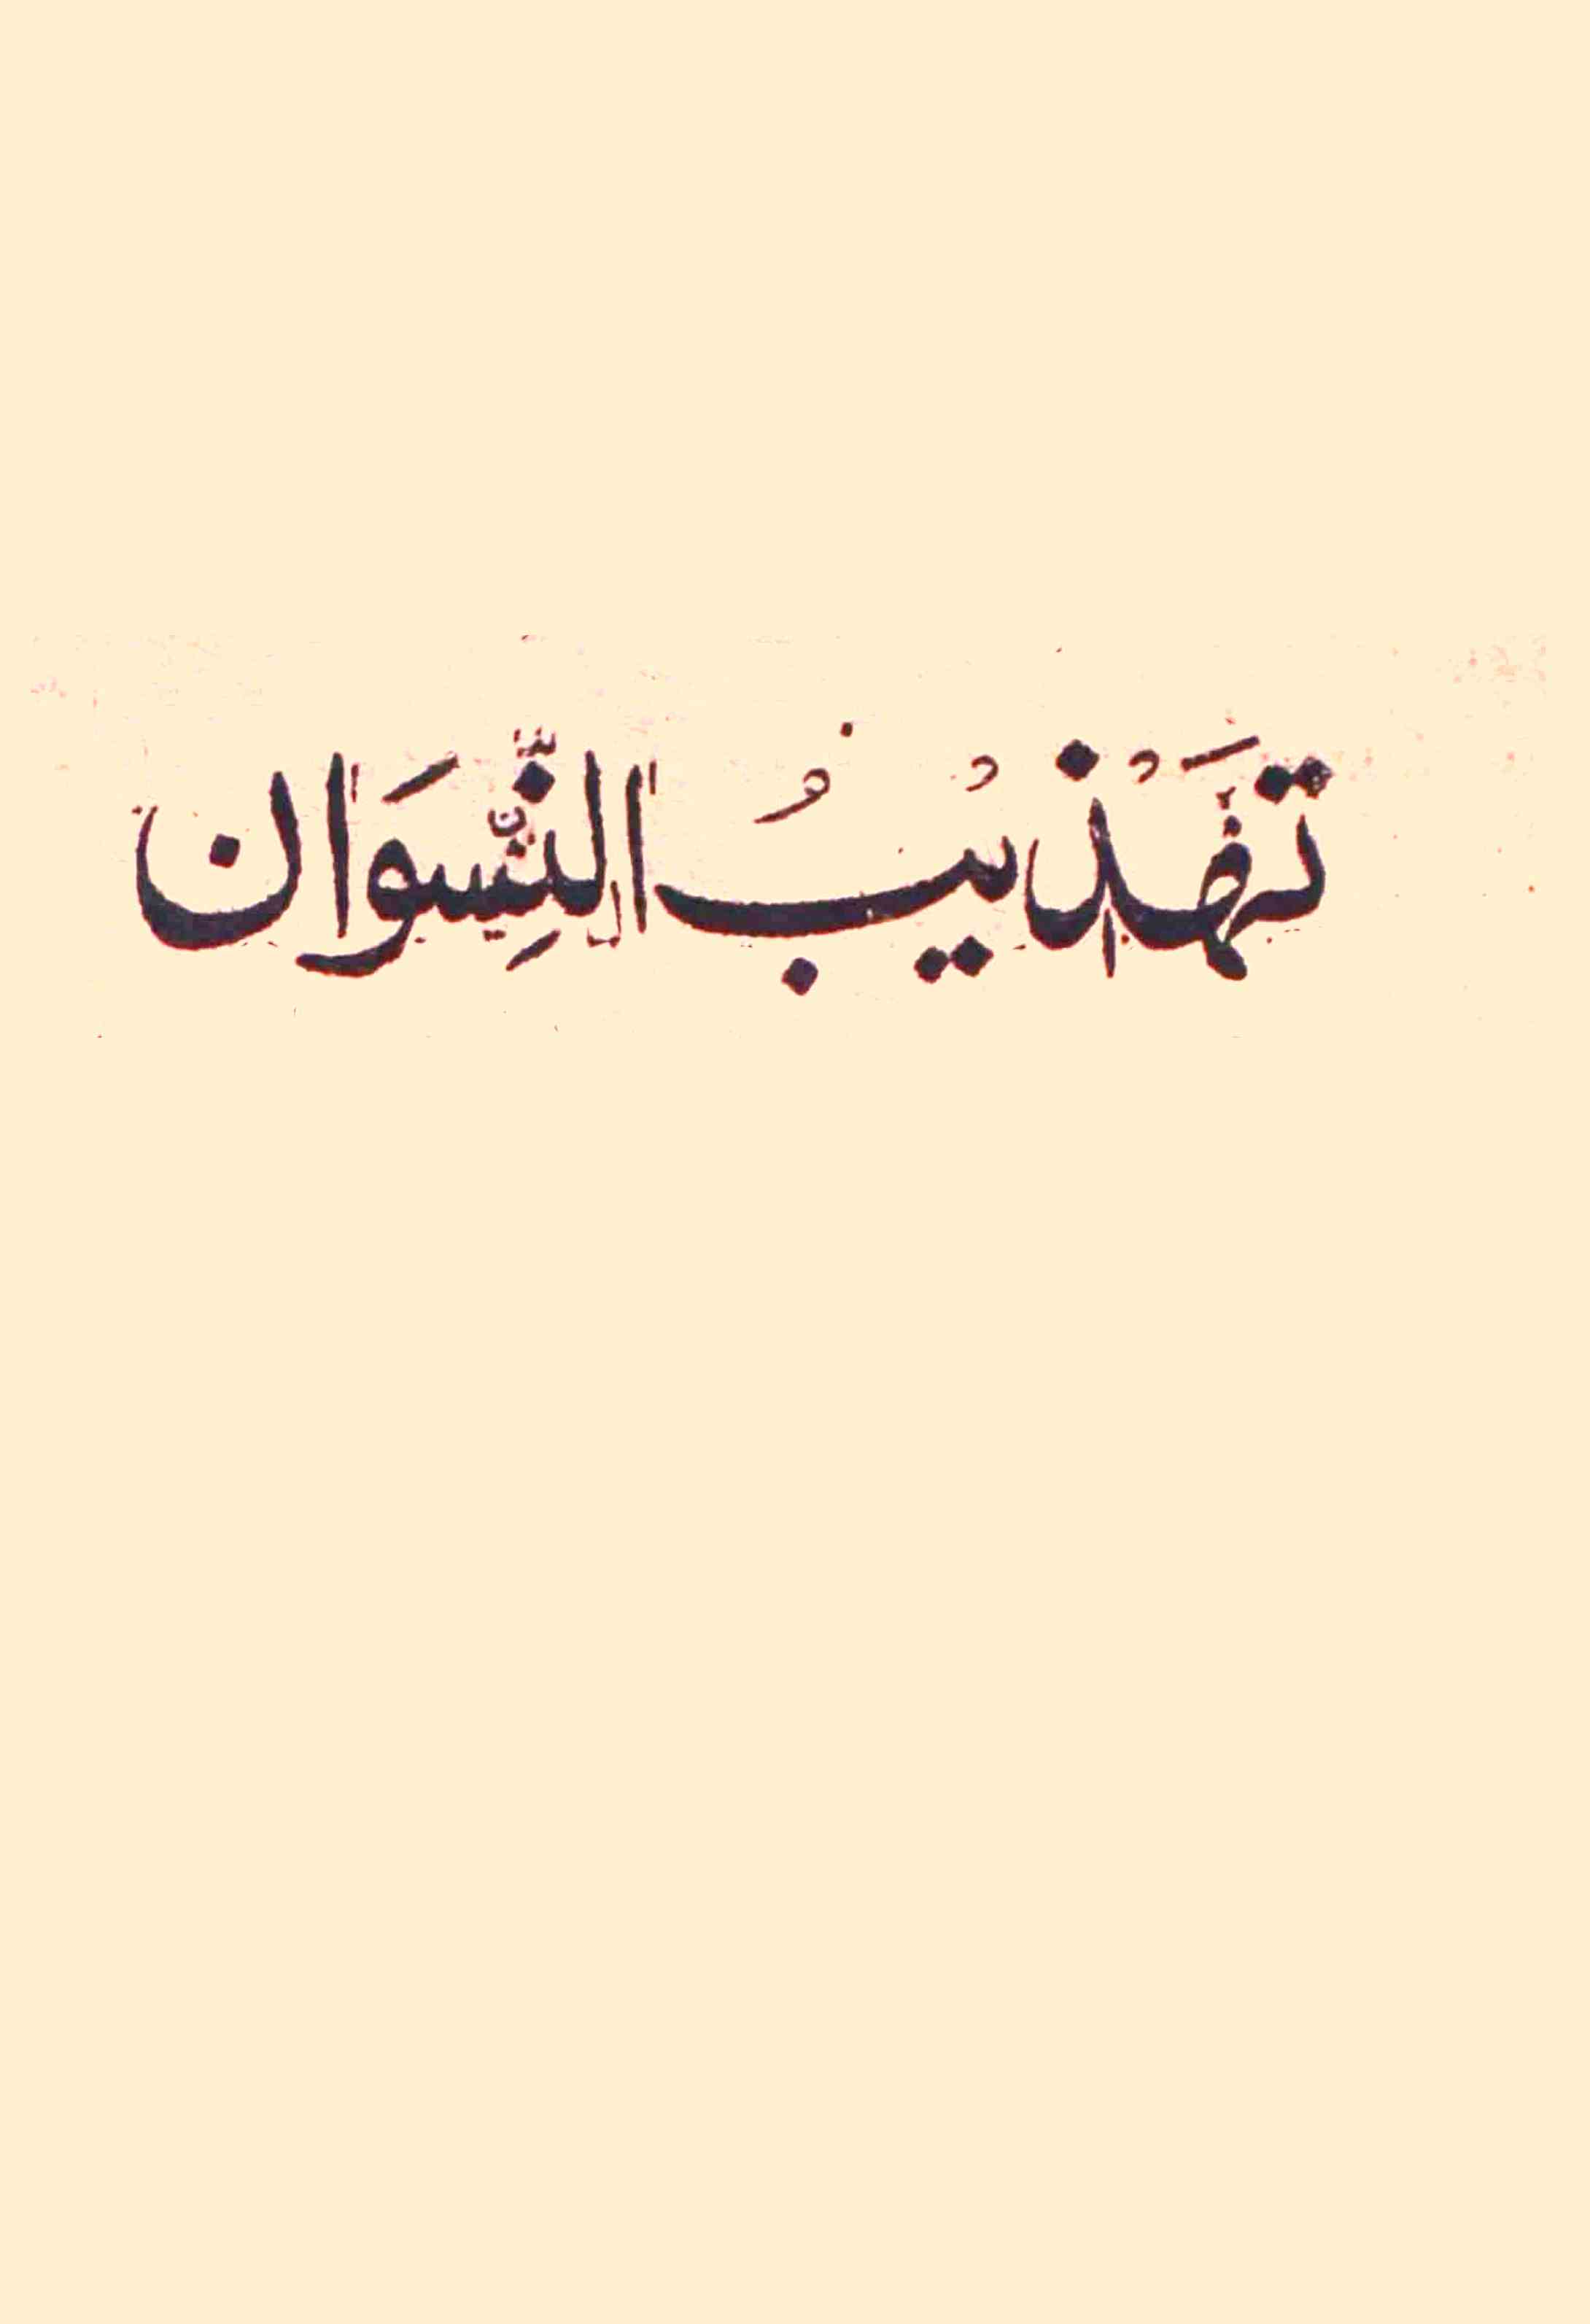 تہذیبُ النِّسوَان